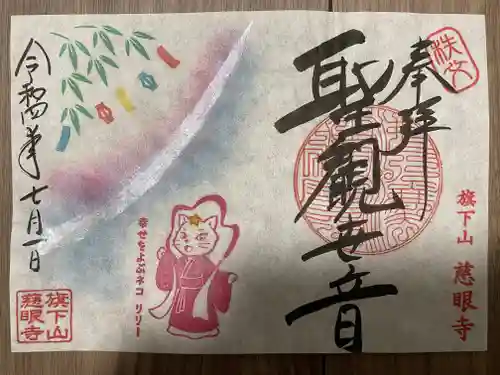 奉拝
秩父
聖観世音
旗下山 慈眼寺
幸せをよぶネコ リリー
令和四年七月一日
旗下山
慈眼寺